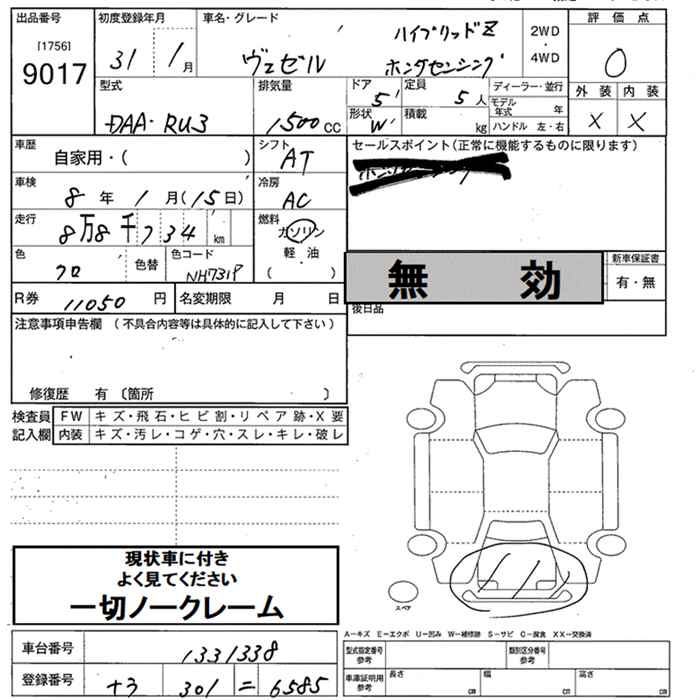 出品番号 初度登録年月 車名・グレード ハイブリッドZ 2WD 評価点
[1756] 31 / 1月 ヴェゼル ホンダセンシング ・ 0
9017 4WD
型式 排気量 ドア 定員 ディーラー・並行 外装 内装
5 5人 モデル年式 年 × ×
DAA-RU3 1500cc 形状 W 積載 kg ハンドル 左・右
車歴 シフト セールスポイント(正常に機能するものに限ります)
自家用・( ) AT
車検 冷房
8年 1月(15日) AC
走行 燃料
8万8千734km ガソリン
軽油
色 色替 色コード ( ) 無効 新車保証書
クロ NH731P 有・無
R券 11050円 名変期限 月 日 後日品
注意事項申告欄 (不具合内容等は具体的に記入して下さい)
修復歴 有 〔箇所 〕
検査員 FW キズ・飛石・ヒビ割・リペア跡・X要
記入欄 内装 キズ・汚レ・コゲ・穴・スレ・キレ・破レ
現状車に付き
よく見てください
一切ノークレーム
スペア
A-キズ E-エクボ U-凹み W-補修跡 S-サビ C-腐食 XX-交換済
車台番号 1331338 型式指定番号 参考 類別区分番号 参考
登録番号 301 = 6585 車庫証明用 参考 長さ cm 幅 cm 高さ cm